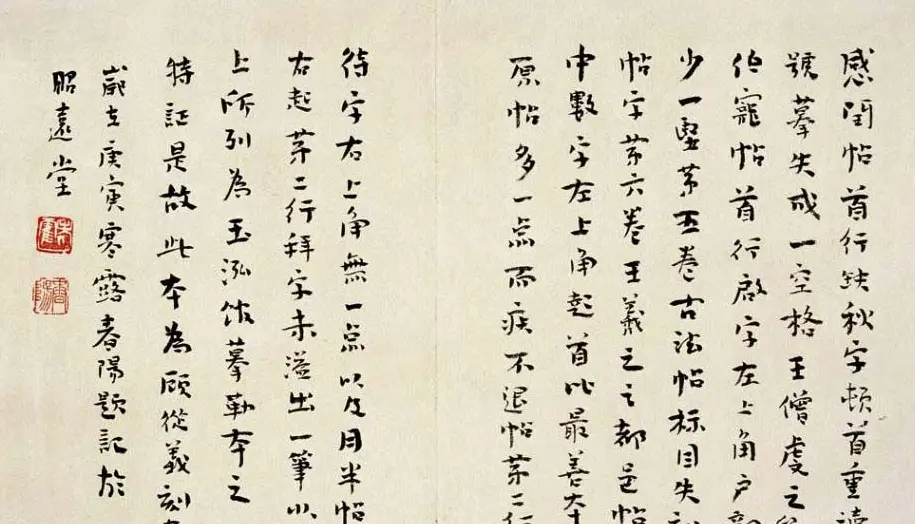 感閏帖首行缺秋字頓首重讀
號摹失成一空格王僧虔之
伯寵帖首行啟字左上角戶
少一竪苐五卷古法帖標目失
帖字苐六卷王羲之之都邑帖
中數字左上角起首比最善本
原帖多一点而疾不退帖苐二行
待字右上角無一点以及月半帖
右起苐二行拜字未溢出一筆以
上所列為玉泓館摹勒本之
特証是故此本為顧從義刻
歲在庚寅寒露春陽題記於
昭遠堂